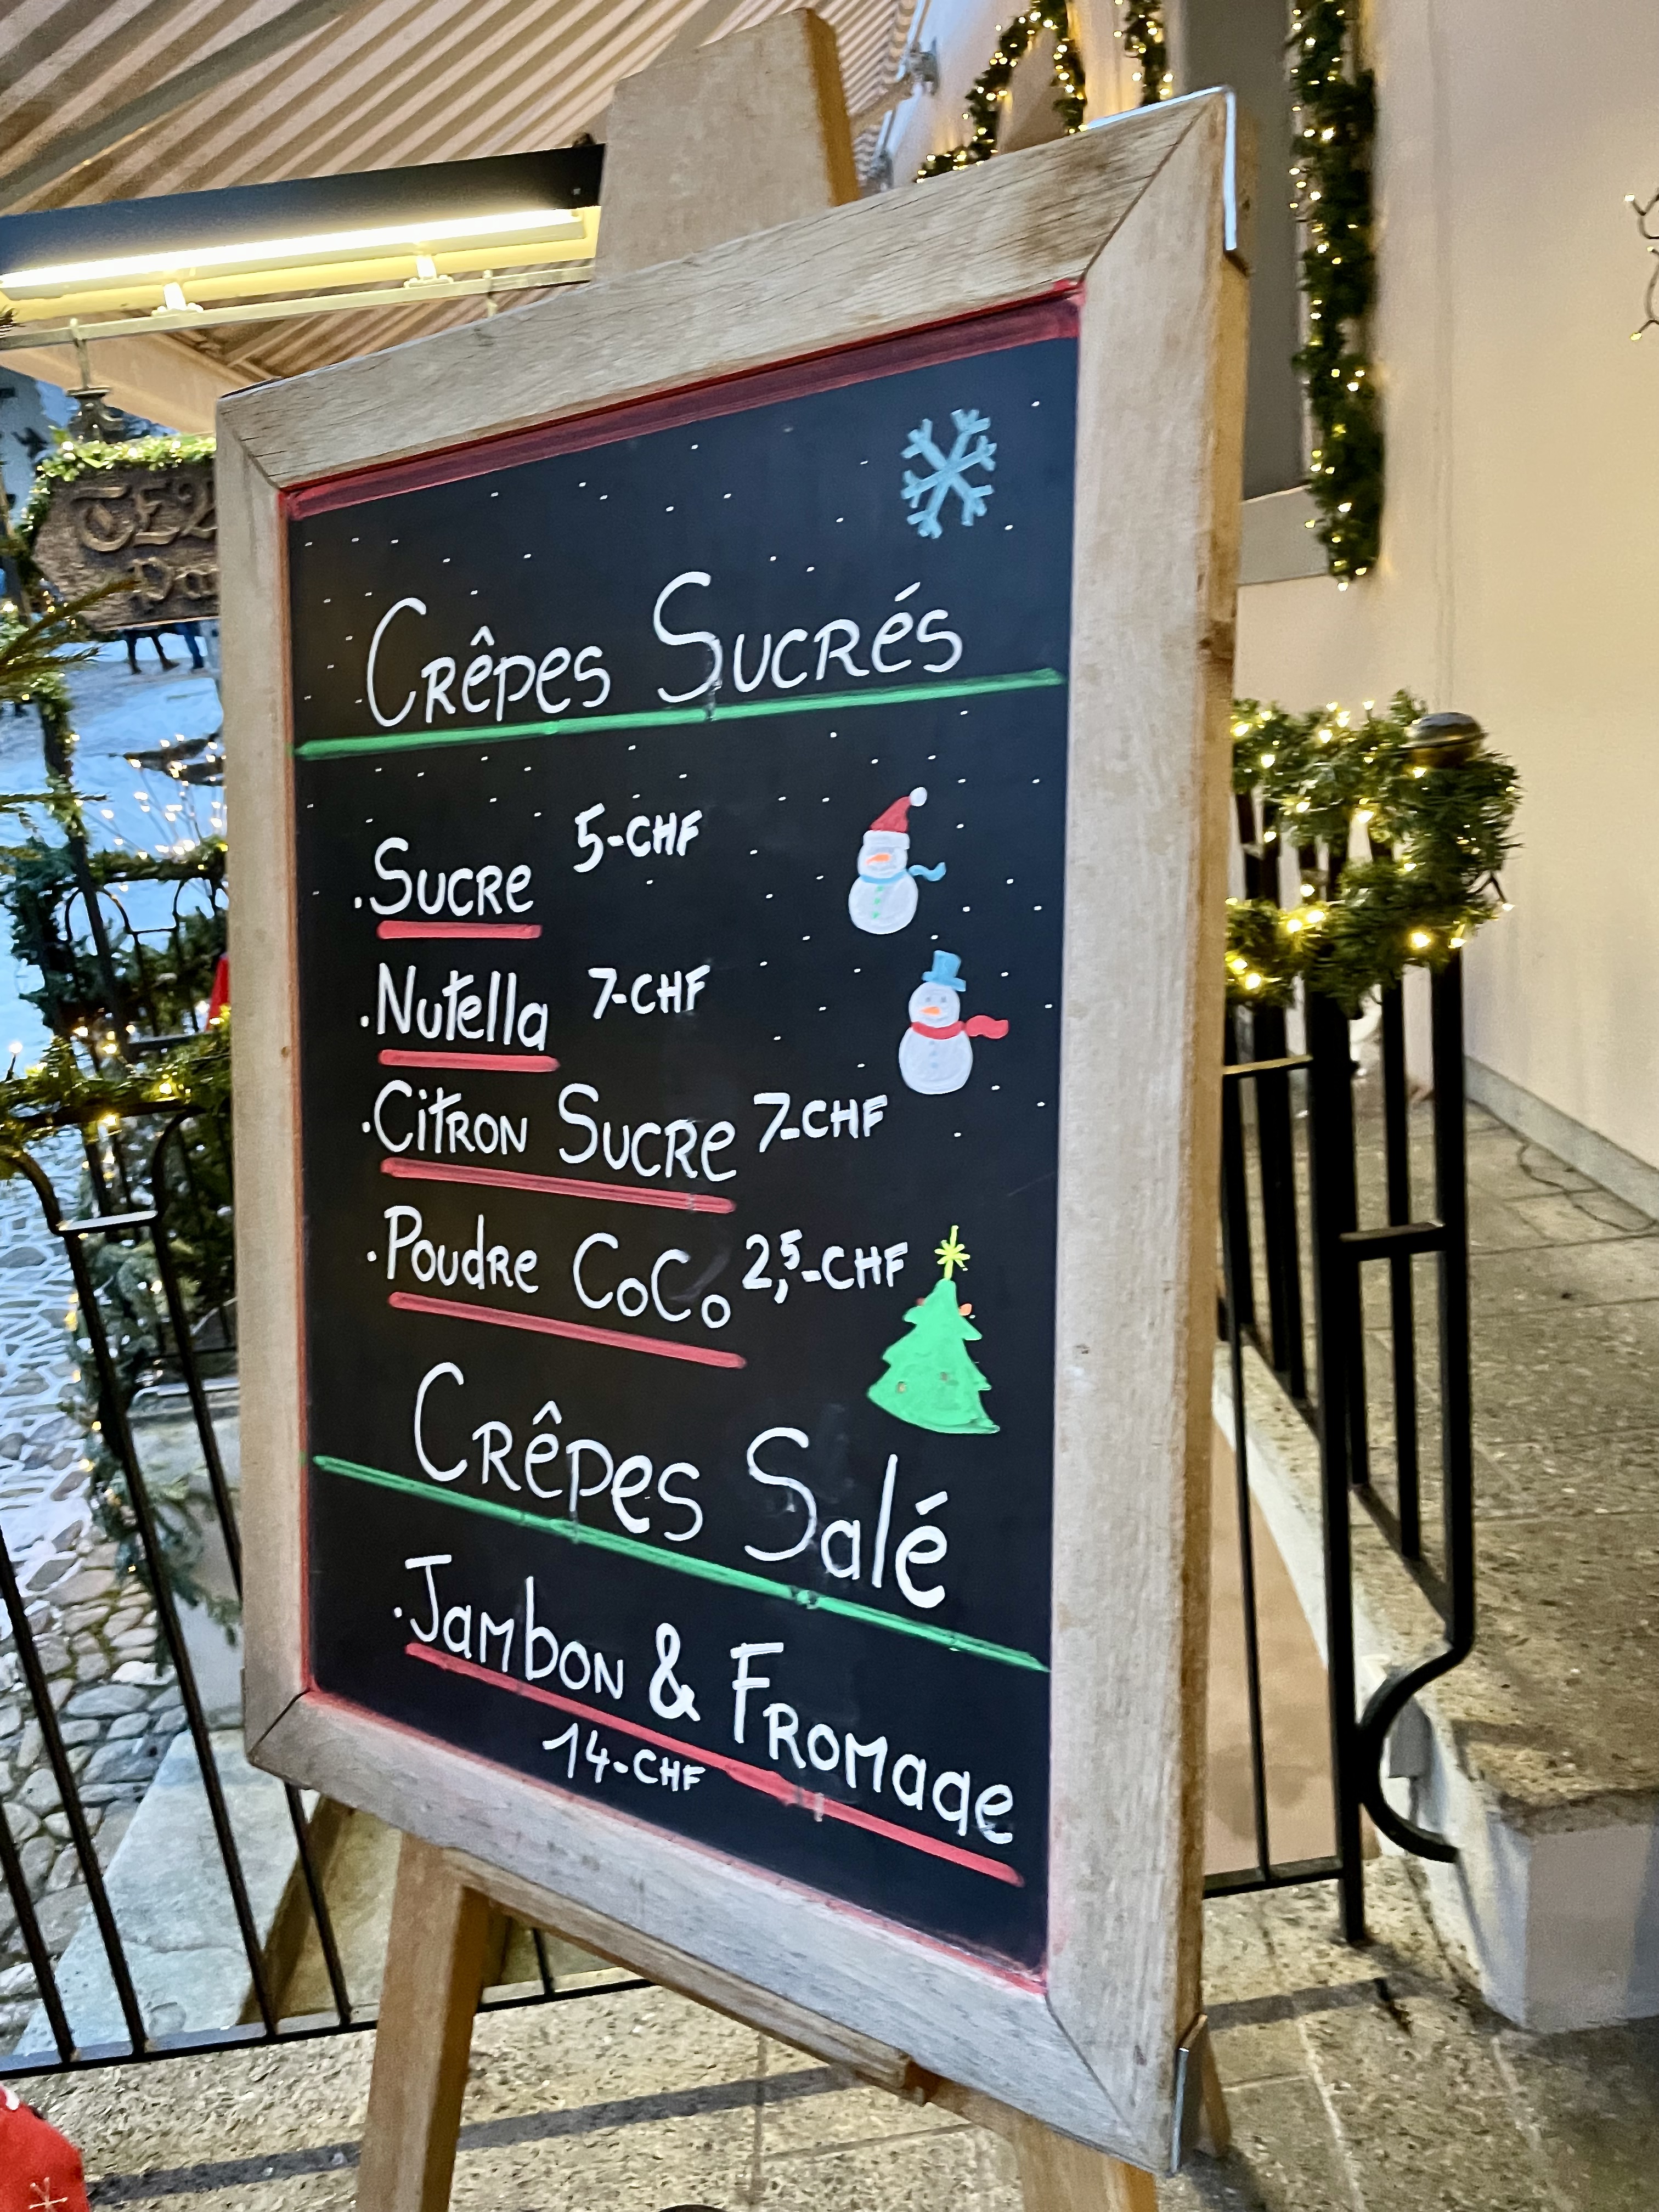 Crêpes Sucrés
.Sucre 5-CHF
.Nutella 7-CHF
.Citron Sucre 7-CHF
.Poudre CoCo 2,5-CHF
Crêpes Salé
.Jambon & Fromage
14-CHF